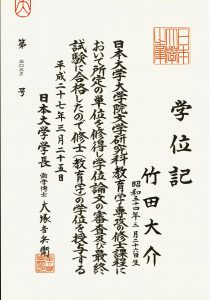 学位記
竹田大介
昭和五十四年三月二十六日生
日本大学大学院文学研究科教育学専攻の修士課程に
おいて所定の単位を修得し学位論文の審査及び最終
試験に合格したので修士(教育学)の学位を授与する
平成二十七年三月二十五日
日本大学学長
大塚吉兵衛
第
号